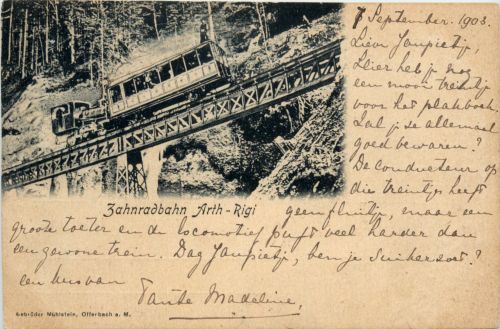 7 September. 1903.
Lieve Janpietij,
Hier heb je nog
een mooi treintje
voor het plakboek.
Zal je ze allemaal
goed bewaren?
De conducteur op
die treintjes heeft
Zahnradbahn Arth-Rigi
geen fluitje, maar een
groote toeter en de locomotief puft veel harder dan
een gewone trein. Dag Janpietij, ben je suikerzoet?
een kus van
Tante Madeline,
Gebrüder Mühlstein, Offenbach a. M.